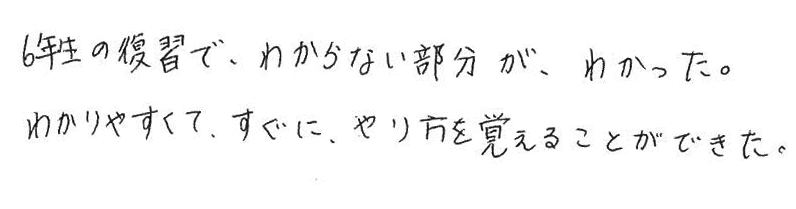 6年生の復習で、わからない部分が、わかった。
わかりやすくて、すぐに、やり方を覚えることができた。